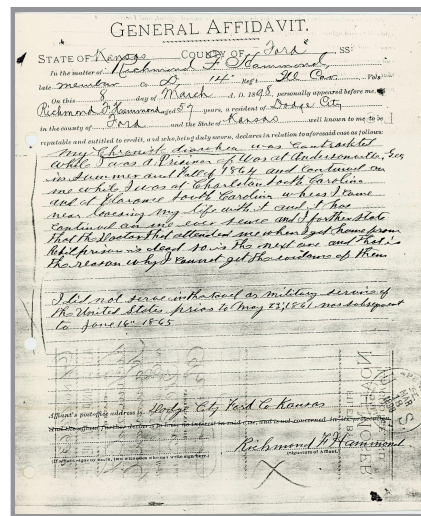 GENERAL AFFIDAVIT.
STATE OF Kansas COUNTY OF Ford SS:
In the matter of Richmond F. Hammond,
late member Co D, 14" Reg't Ill Cav Vols
On this 8 day of March A. D. 1898, personally appeared before me
Richmond F. Hammond aged 57 years, a resident of Dodge City
in the county of Ford and the State of Kansas well known to me to be
reputable and entitled to credit, and who, being duly sworn, declares in relation to aforesaid case as follows:
My Chronic diarhea was Contracted
while I was a Prisoner of War at Andersonville, Geo
in Summer and Fall of 1864 and continued on
me while I was at Charlston South Carolina
and at Florance South Carolina where I came
near loosing my life with it and it has
continued on me ever sence and I forther state
that the Doctor that attended me when I got home from
Rebil prison is dead so is the next one and that is
the reason why I cannot get the evidance of them
I did not serve in the naval or military service of
the United States prior to May 1861 nor subsequent
to June 16" 1865
Affiant's post-office address is Dodge City Ford Co Kansas
Richmond F Hammond
(Signature of Affiant.)
X